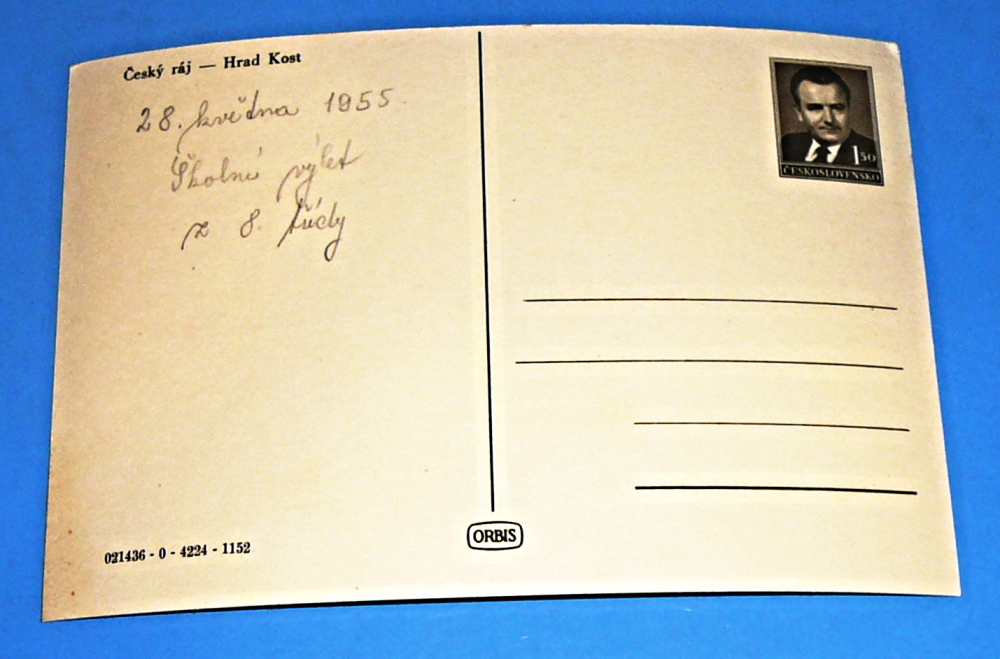 Český ráj — Hrad Kost
28. května 1955
Školní výlet
z 8. třídy
021436 - 0 - 4224 - 1152
ORBIS
1 50
ČESKOSLOVENSKO